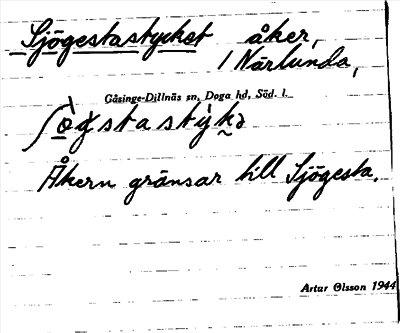 Sjögestastycket åker,
1 Närlunda,
Gåsinge-Dillnäs sn, Daga hd, Söd. l.
Åkern gränsar till Sjögesta.
Artur Olsson 1944